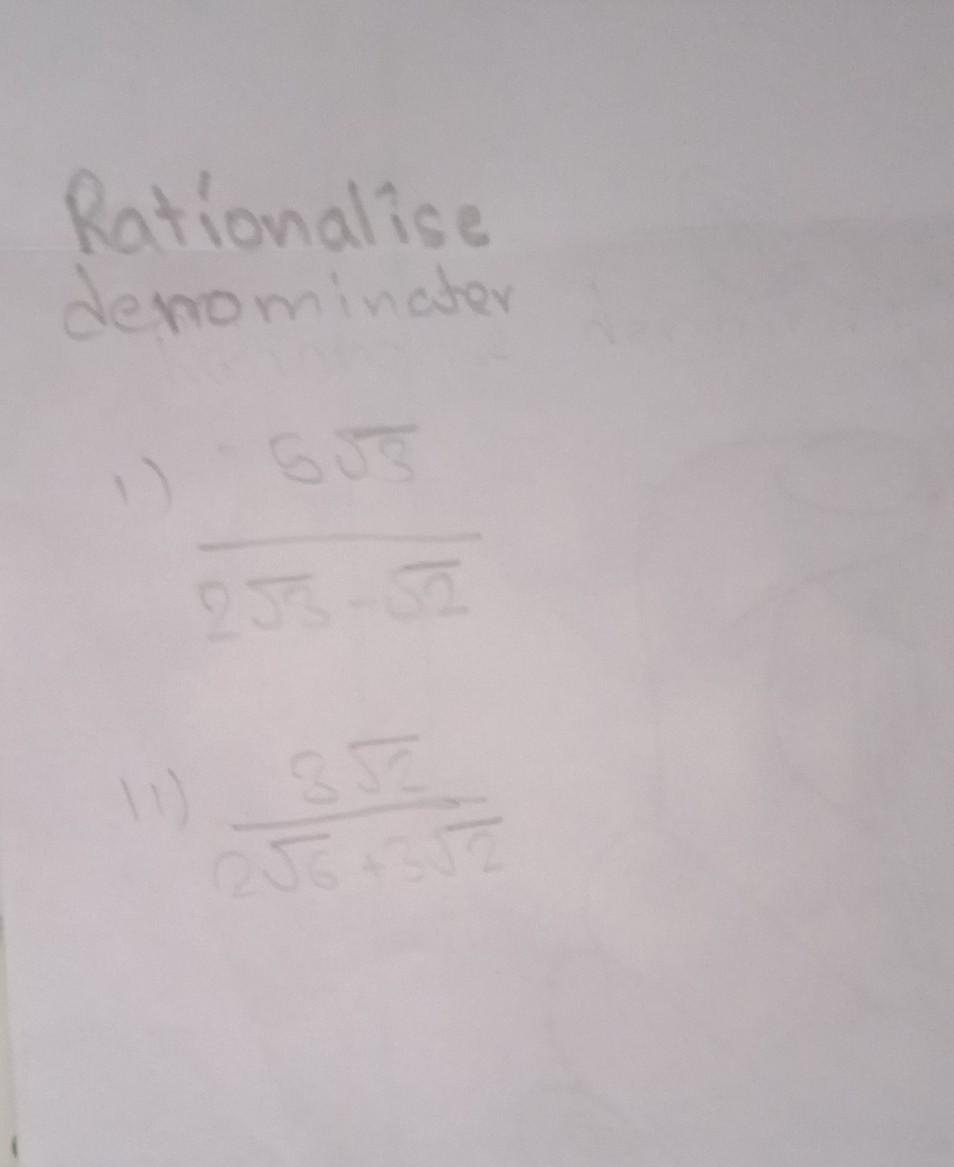 Rationalise
denominater
i) 5√3
2√3-√2
ii) 3√2
2√6+3√2